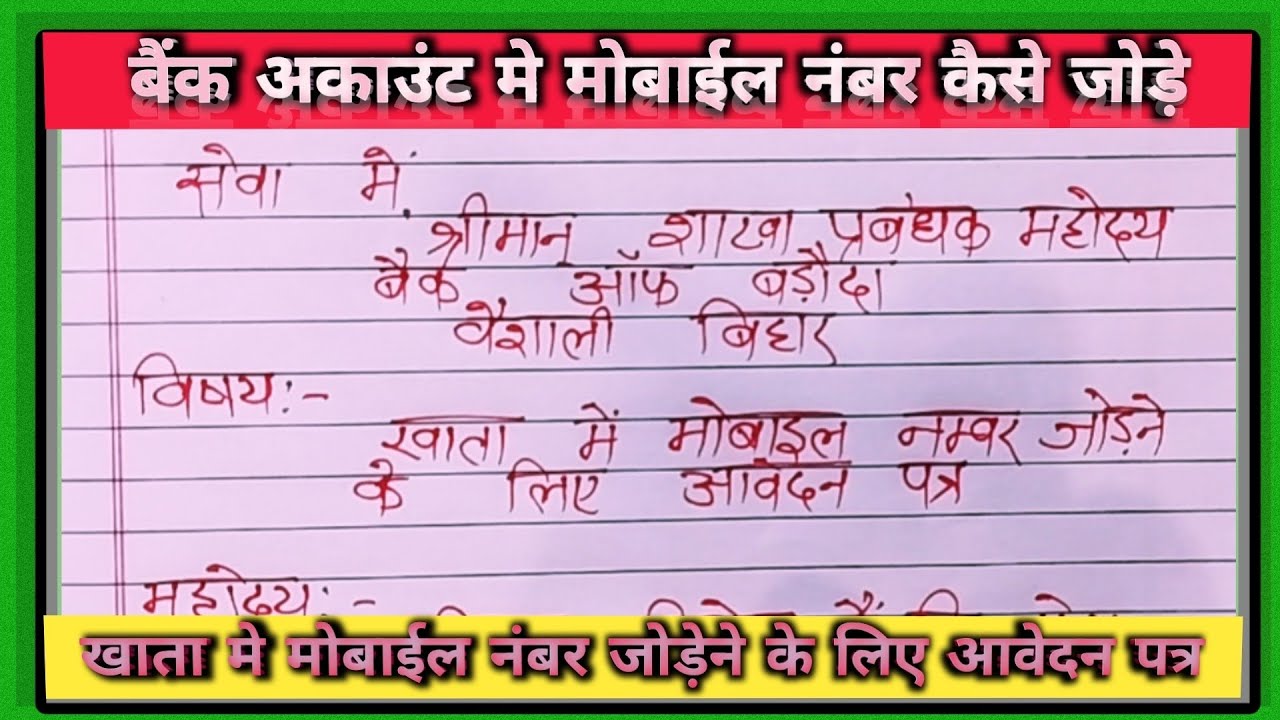 बैंक अकाउंट मे मोबाईल नंबर कैसे जोड़े
सेवा में,
श्रीमान् शाखा प्रबंधक महोदय
बैंक ऑफ बड़ौदा
वैशाली बिहार
विषय:-
खाता में मोबाइल नम्बर जोड़ने
के लिए आवेदन पत्र
महोदय:-
खाता मे मोबाईल नंबर जोड़ेने के लिए आवेदन पत्र